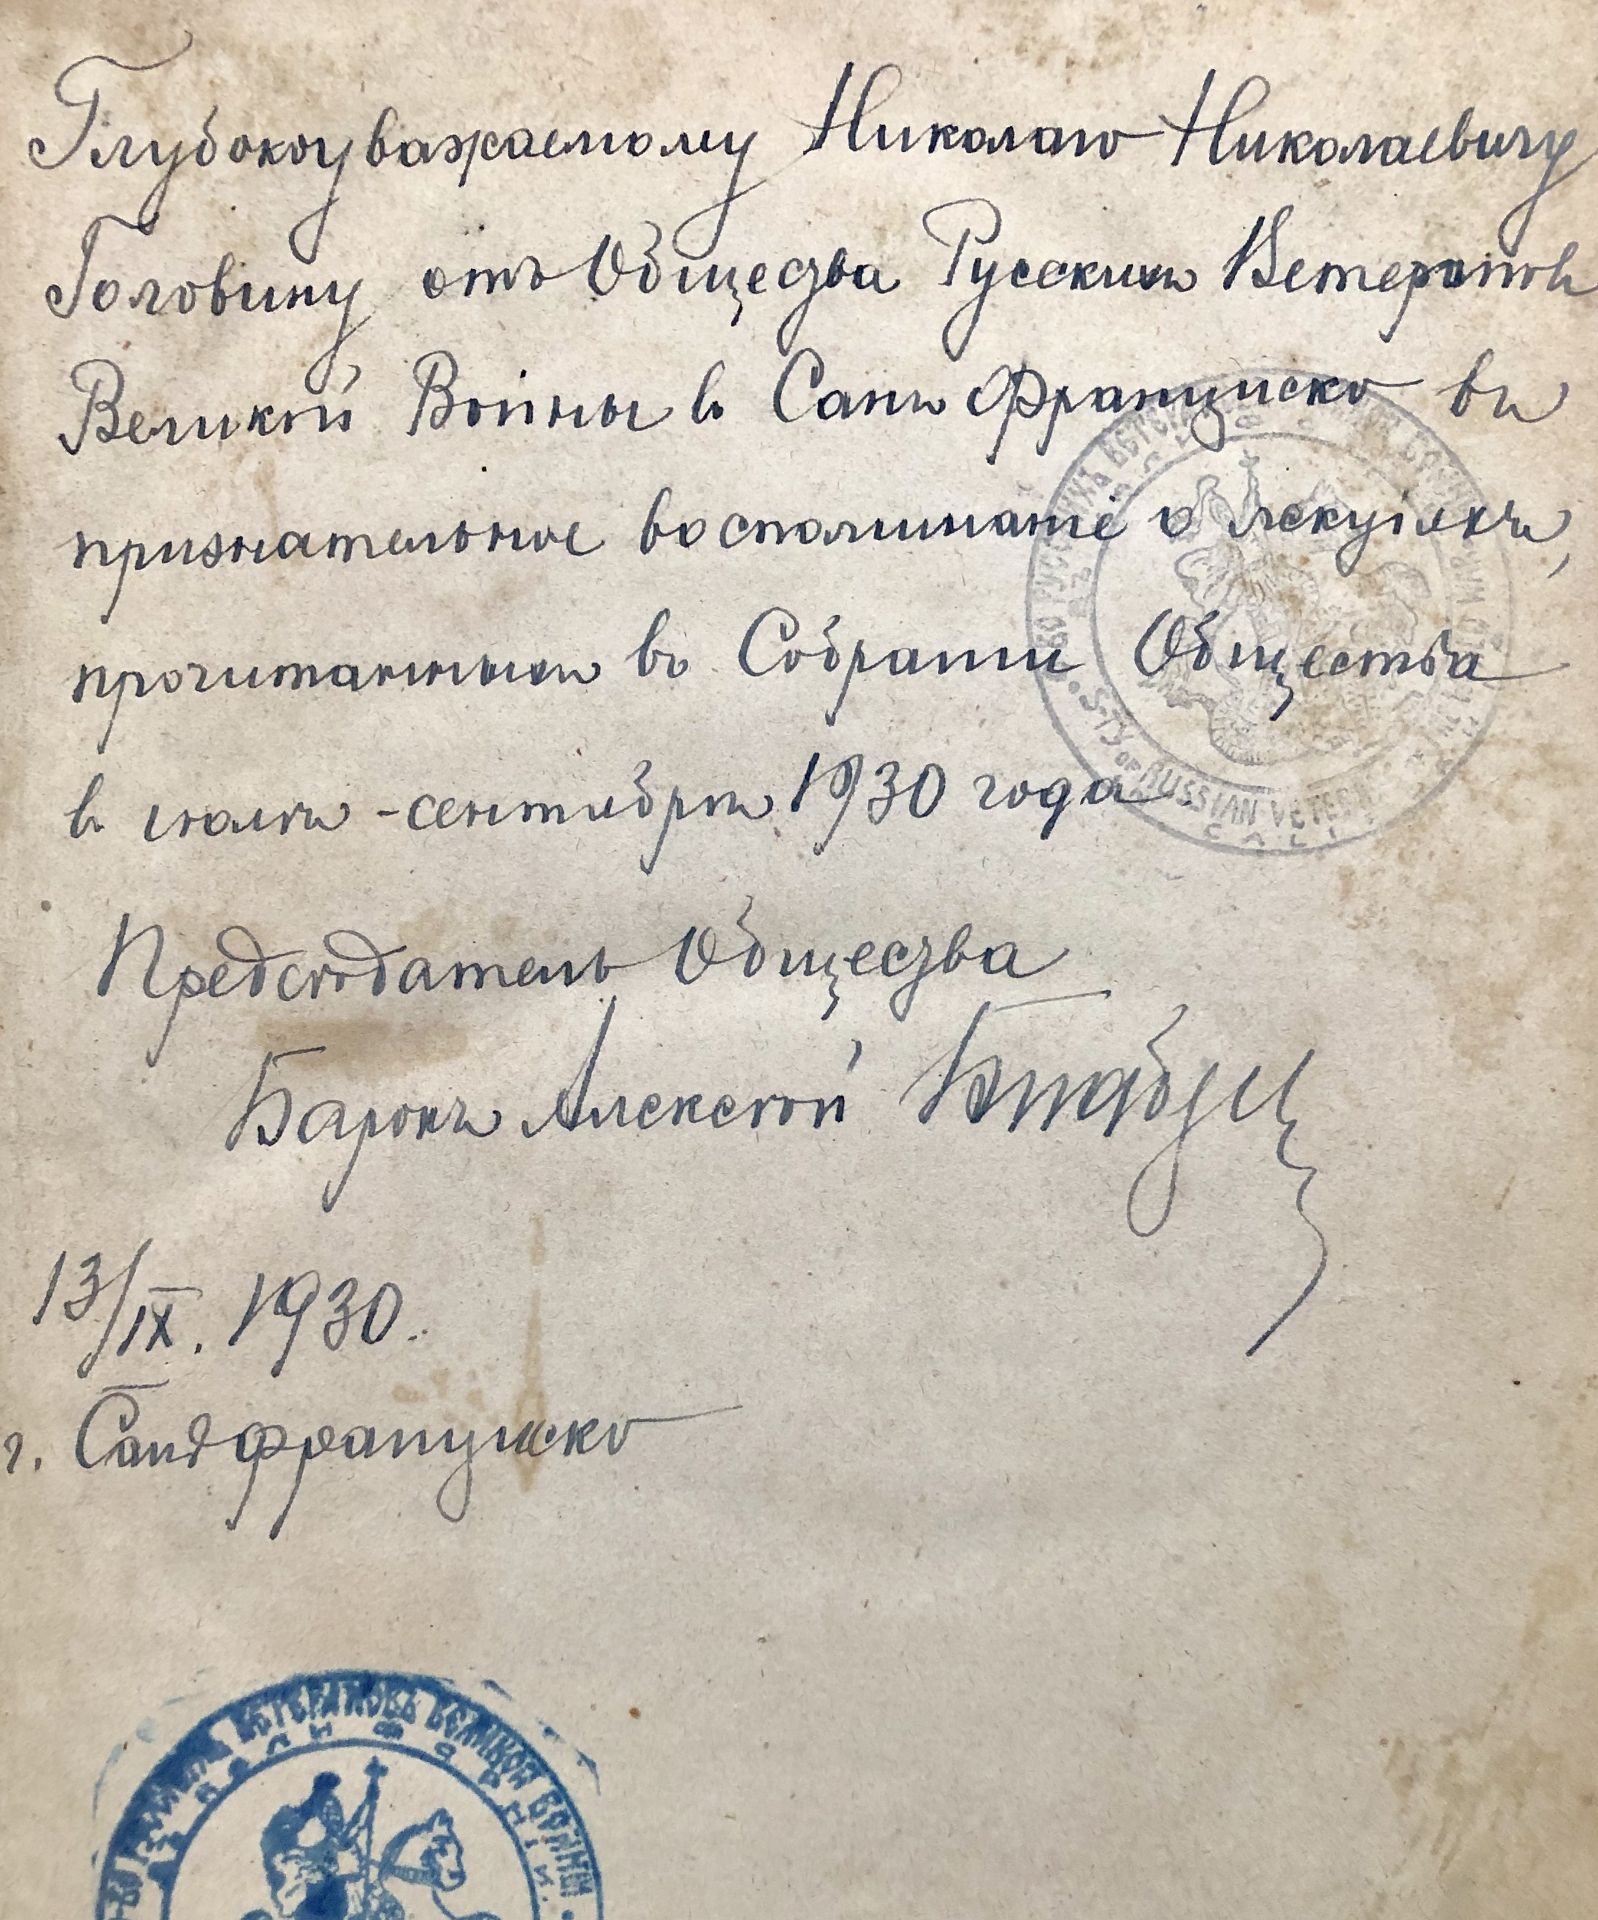 Глубокоуважаемому Николаю Николаевичу
Головину отъ Общества Русскихъ Ветерановъ
Великой Войны въ Санъ Франциско въ
признательное воспоминаніе о лекціяхъ,
прочитанныхъ въ Собраніи Общества
въ іюлѣ - сентябрѣ 1930 года.
Предсѣдатель Общества
Баронъ Алексѣй Будбергъ
13/IX. 1930.
г. Санъ Франциско
РУССКИХЪ ВЕТЕРАНОВЪ ВЕЛИКОЙ ВОЙНЫ
S-TY OF RUSSIAN VETERANS
CALI
ВЕТЕРАНОВЪ ВЕЛИКОЙ ВОЙНЫ